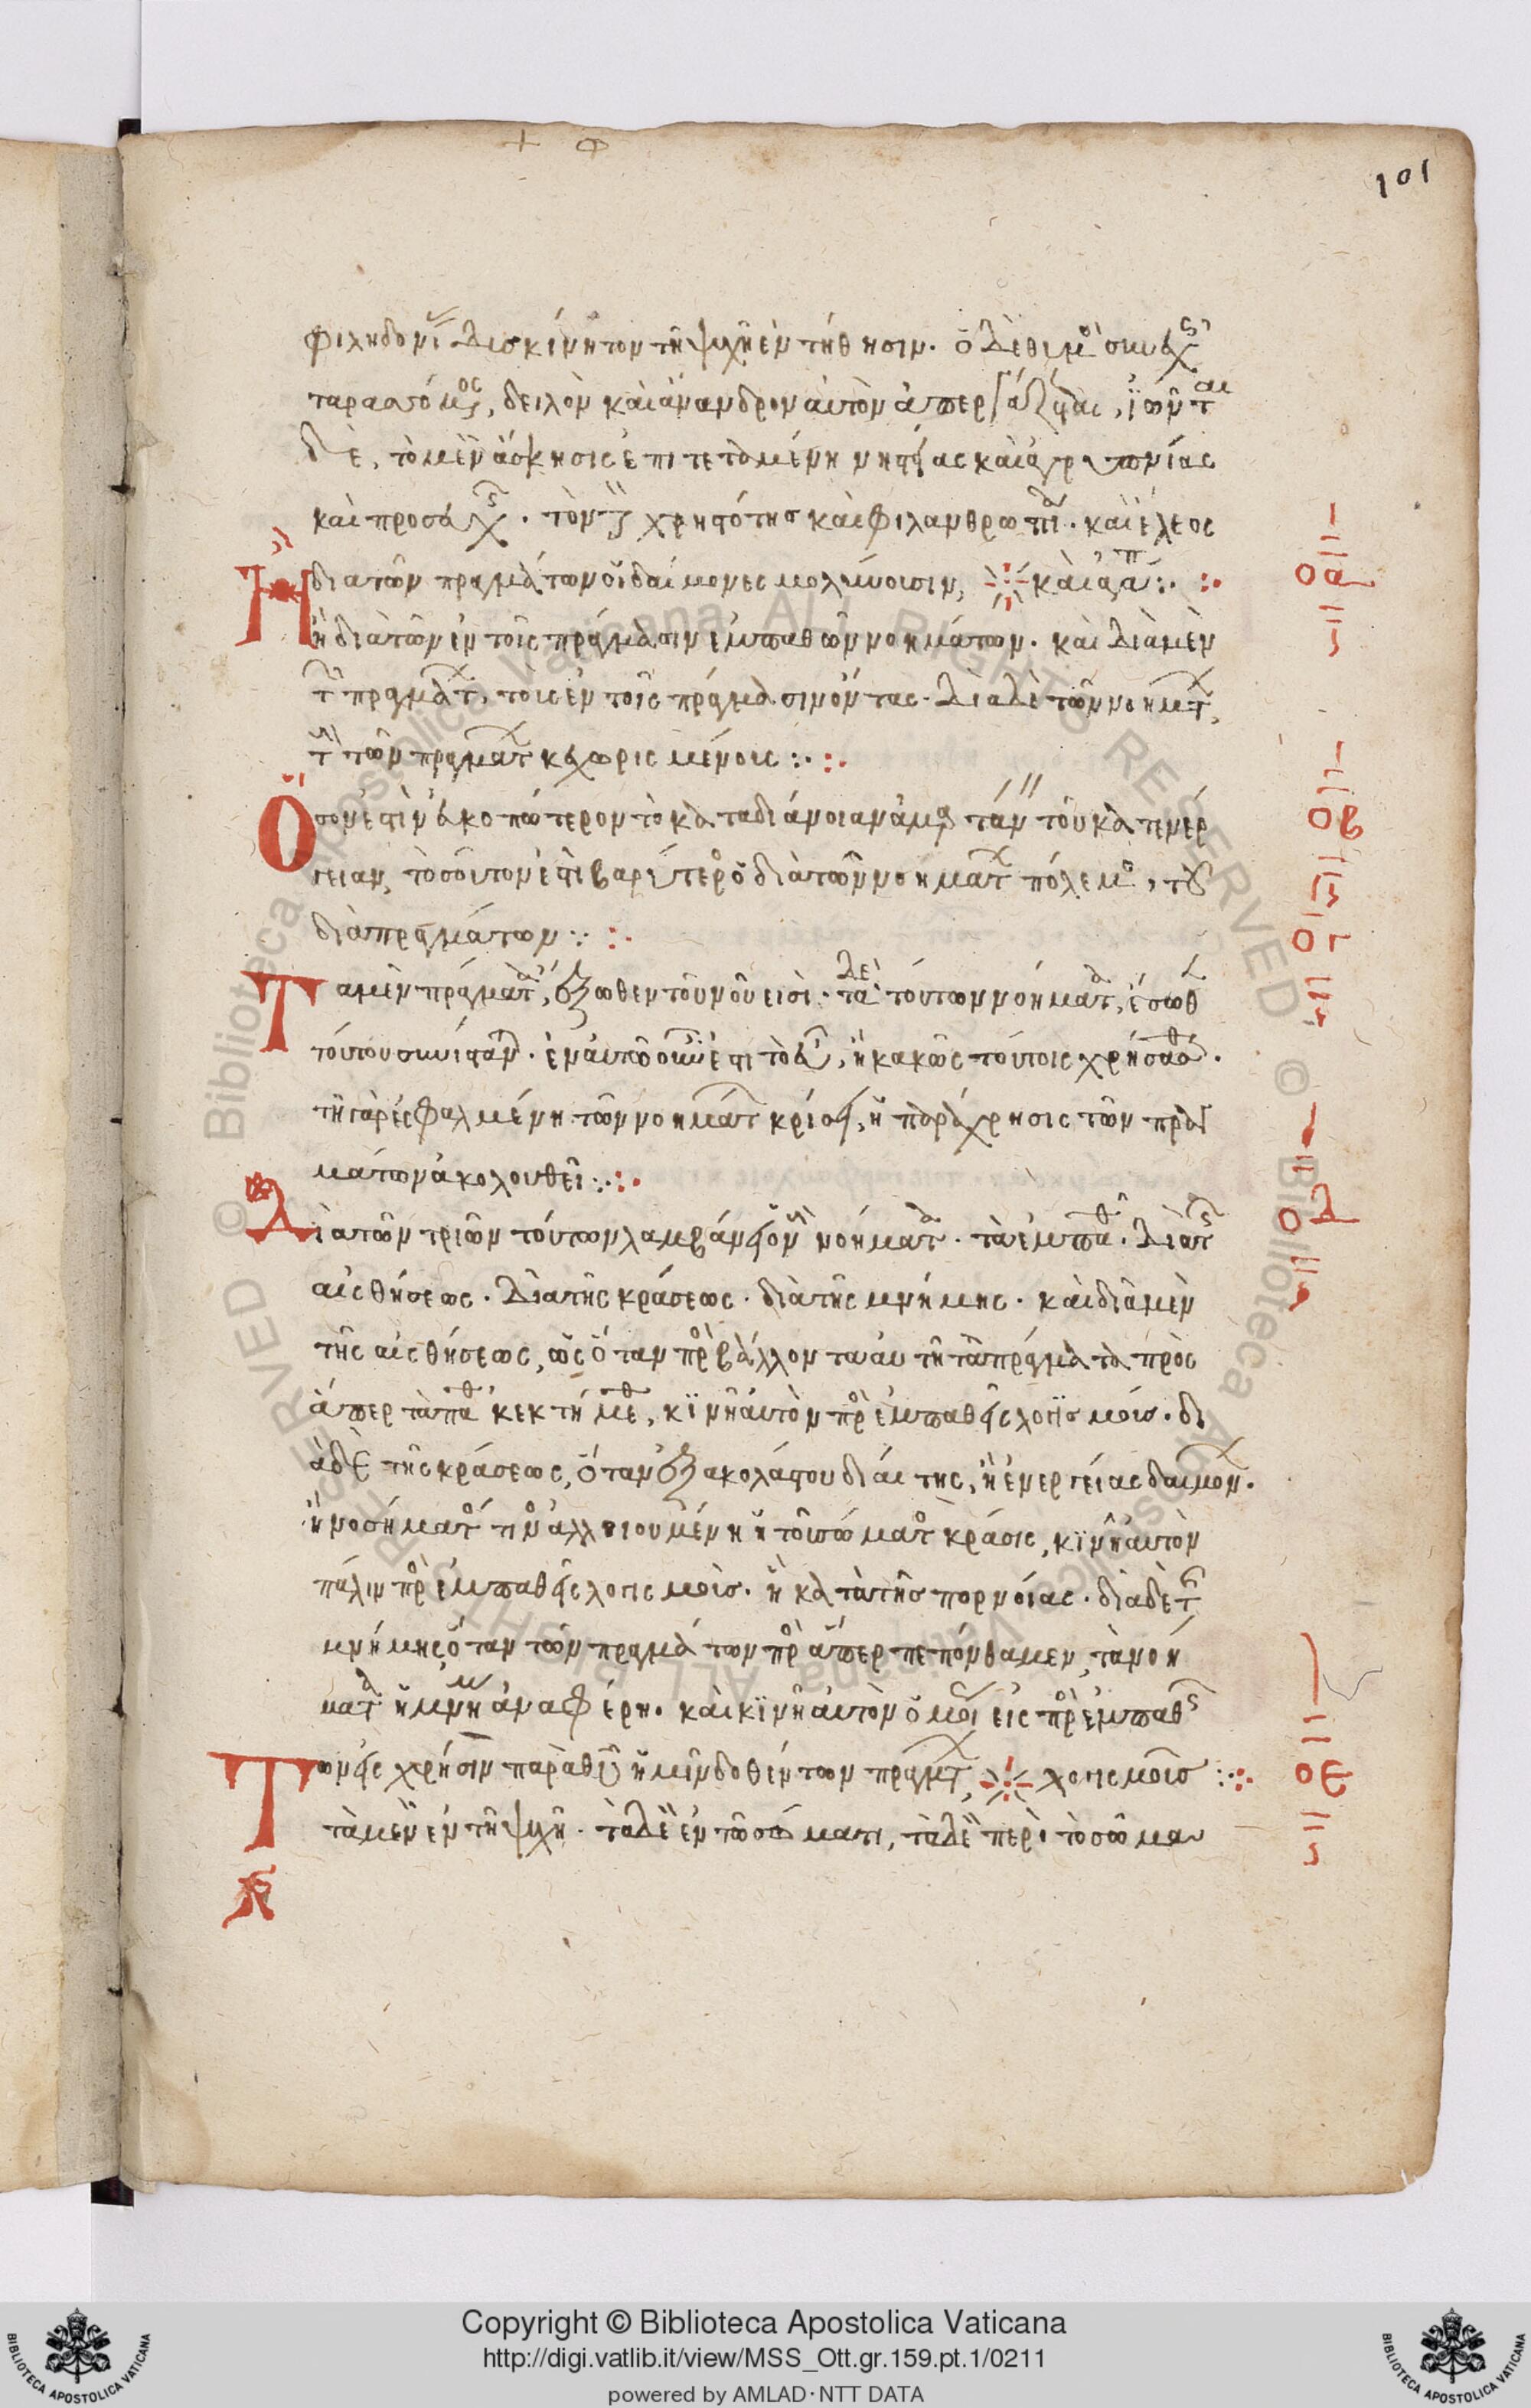 101
φιληδονί δισκίνητον τῆ ψυχῆ ἐντήθησιν. ὁ δὲ θυμὸ συνεχ
ταρασσόμος, δειλὸν καὶ ἄνανδρον αὐτὸν ἀπεργάζεται, ἰῶνται
δὲ, τὸ μὲν ἄσκησις ἐπιτεταμένη νηστείας καὶ ἀγρυπνίας
καὶ προσευχ. τὸν δὲ χρηστότης καὶ φιλανθρωπί. καὶ ἔλεος
Ἢ διὰ τῶν πραγμάτων οἱ δαίμονες πολεμοῦσιν, καὶ ἀγάπ:· :·
ἢ διὰ τῶν ἐν τοῖς πράγμασιν ἐμπαθῶν νοημάτων. καὶ διὰ μὲν
τ πραγμάτ, τοῖς ἐν τοῖς πράγμασιν ὄντας. διὰ δὲ τῶν νοημτ,
τ τῶν πραγματ κεχωρισμένοις :· :·
Ὅσον ἐστὶν εὐκοπώτερον τὸ κατα διάνοιαν ἁμαρτάν τοῦ κατ ἐνέρ
γειαν, τοσοῦτον ἐστὶ βαρύτερο ὁ διὰ τῶν νοηματ πόλεμο, τοῦ
διὰ πραγμάτων :· :·
Τα μὲν πράγματα, ἔξωθεν τοῦ νοῦ εἰσὶ. τὰ δὲ τούτων νοήματα, ἔσωθ
τούτου συνίσταν. ἐν αὐτῶ οὖν ἐστὶ τὸ εὖ, ἢ κακῶς τούτοις χρήσασθ.
τῆ γὰρ ἐσφαλμένη τῶν νοηματ κρίσει, ἡ παράχρησις τῶν πραγ
μάτων ἀκολουθεῖ :· :·
Διὰ τῶν τριῶν τούτων λαμβάνει ὁ νοῦ νοήματα. τὰ ἐμπαθ. διὰ τ
αἰσθήσεως. διὰ τῆς κράσεως. διὰ τῆς μνήμης. καὶ διὰ μὲν
τῆς αἰσθήσεως, ὡς ὅταν προσβάλλονται αὐτῆ τὰ πράγματα πρὸς
ἅπερ τὰ πάθ κεκτήμεθ, κϊνῆ αὐτὸν προ ἐμπαθεῖς λογϊσμούς. δι
ὰ δὲ τῆς κράσεως, ὅταν ἐξ ἀκολάστου διάιτης, ἢ ἐνεργείας δαιμον.
ἢ νοσήματο τινο ἀλλοιουμένη ἡ τοῦ σώματο κράσις, κϊνῆ αὐτὸν
πάλιν προ ἐμπαθεῖς λογισμούς. ἢ κατὰ τῆς προνοίας. διὰ δὲ τ
μνήμης ὅταν τῶν πραγμάτων προ ἅπερ πεπόνθαμεν, τὰ νοή
ματα ἡ μνήμη ἀναφέρη. καὶ κϊνῆ αὐτὸν ὁμοί εἰς προ ἐμπαθ
Των εἰς χρῆσιν παρὰ θυ ἡμῖν δοθέντων πραγμτ, λογισμούς :· :·
τὰ μὲν ἐν τῆ ψυχῆ. τὰ δὲ ἐν τῶ σώματι, τὰ δὲ περὶ τὸ σῶμα
οα
οβ
ογ
οδ
οε
Copyright © Biblioteca Apostolica Vaticana
http://digi.vatlib.it/view/MSS_Ott.gr.159.pt.1/0211
powered by AMLAD·NTT DATA